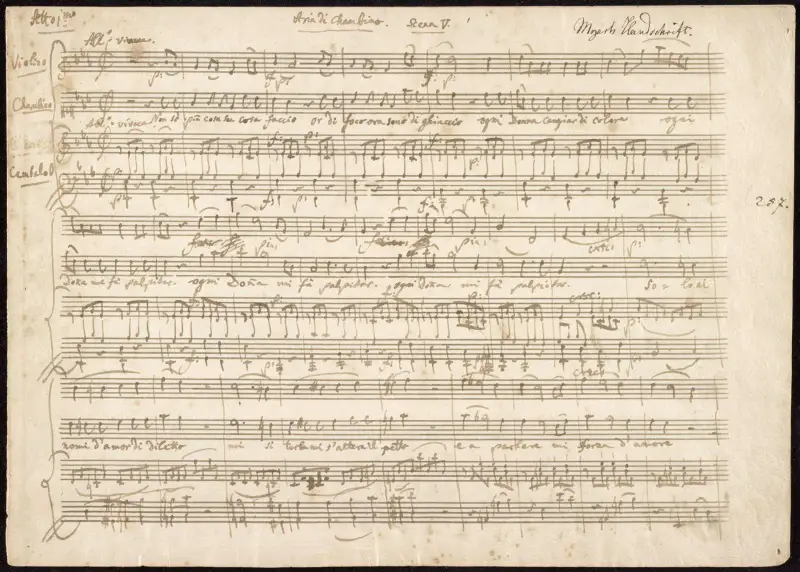 Atto 1mo Aria di Cherubino. Scena V. Mozarts Handschrift.
All.o vivace.
Violino p: f: p: f: p:
Cherubino
All.o vivace Non sò più cosa son cosa faccio or di foco ora sono di ghiaccio ogni Donna cangiar di colore ogni
f: p: p:
Cembalo
p: f: p: f: p:
287.
p: p: cresc: p:
Donna mi fà palpitar. ogni Donna mi fà palpitar. ogni Donna mi fà palpitar. So = lo ai
cresc: p:
p: p: cresc: p:
nomi d'amor di diletto mi si turba mi s'altera il petto e a parlare mi forza d'amore